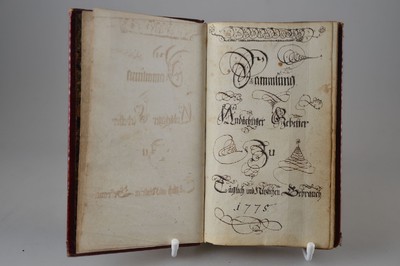 Sammlung
Andächtiger Gebetter
Zu
Täglich und Nüzlichen Gebrauch
1778